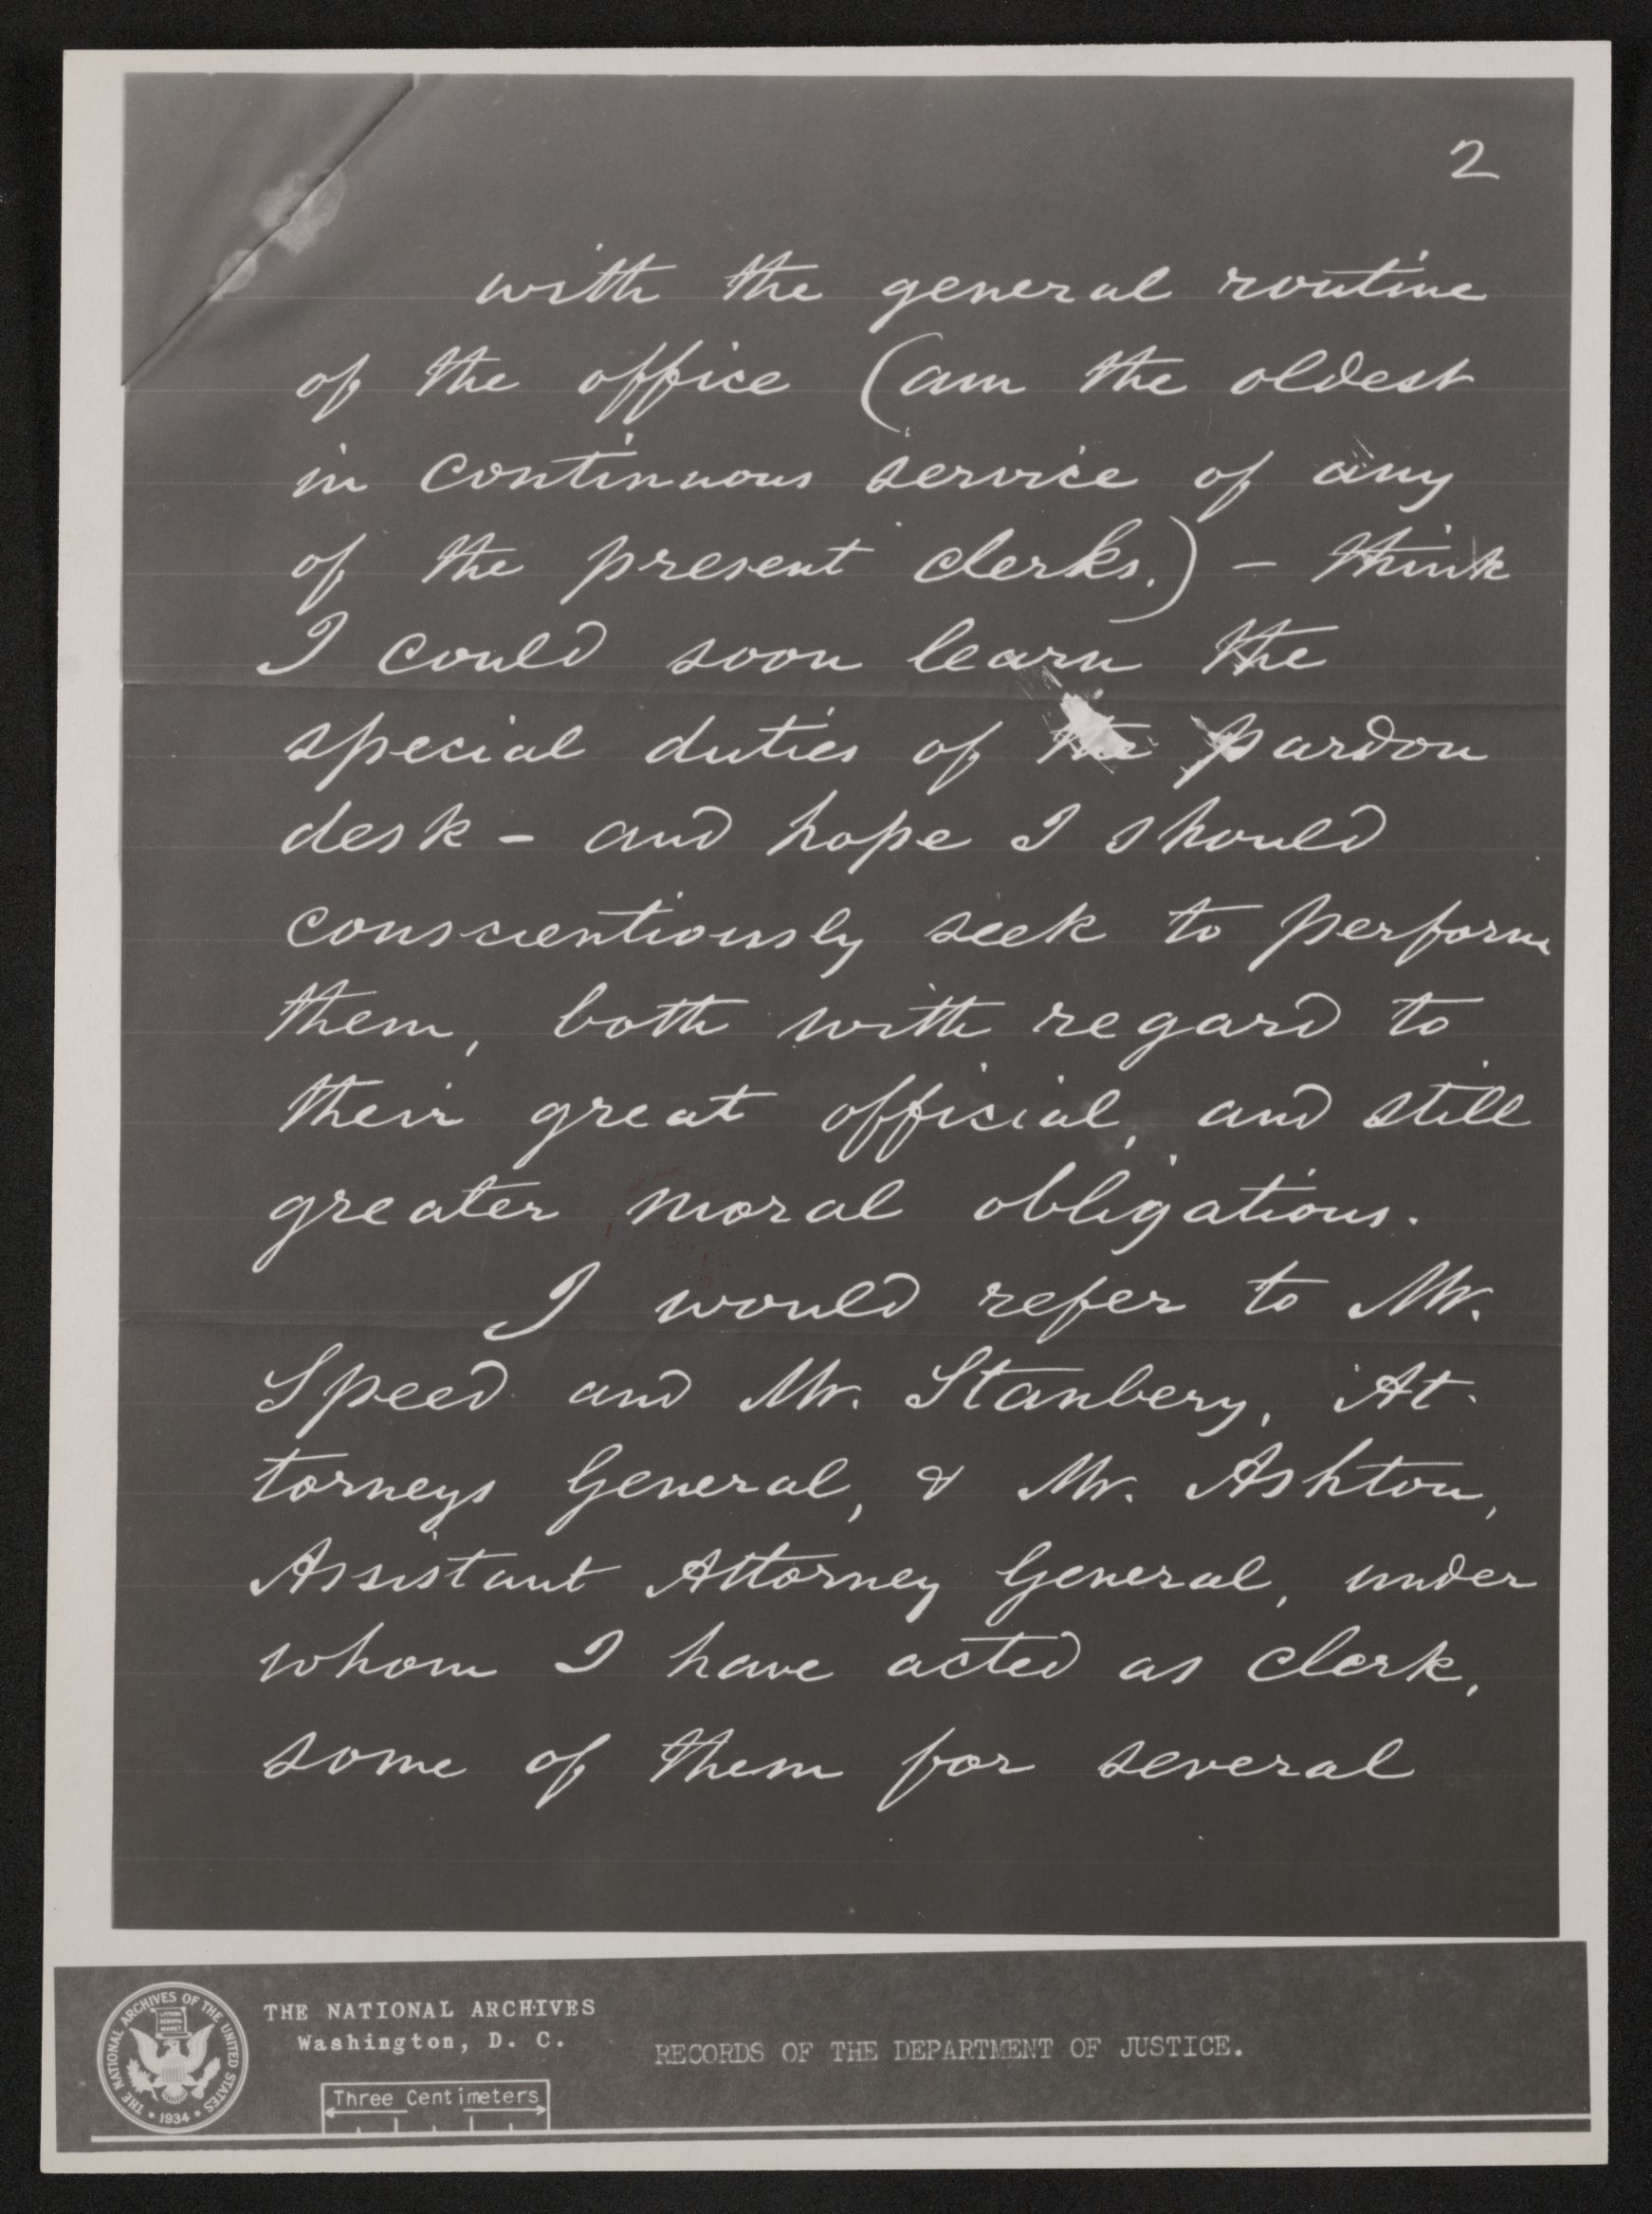 2
with the general routine
of the office (am the oldest
in continuous service of any
of the present clerks.) – think
I could soon learn the
special duties of the pardon
desk – and hope I should
conscientiously seek to perform
them, both with regard to
their great official, and still
greater moral obligations.
I would refer to Mr.
Speed and Mr. Stanbery, At-
torneys General, & Mr. Ashton,
Assistant Attorney General, under
whom I have acted as clerk,
some of them for several
THE NATIONAL ARCHIVES
Washington, D. C.
RECORDS OF THE DEPARTMENT OF JUSTICE.
Three Centimeters
THE NATIONAL ARCHIVES OF THE UNITED STATES
LITTERA
SCRIPTA
MANET
* 1934 *